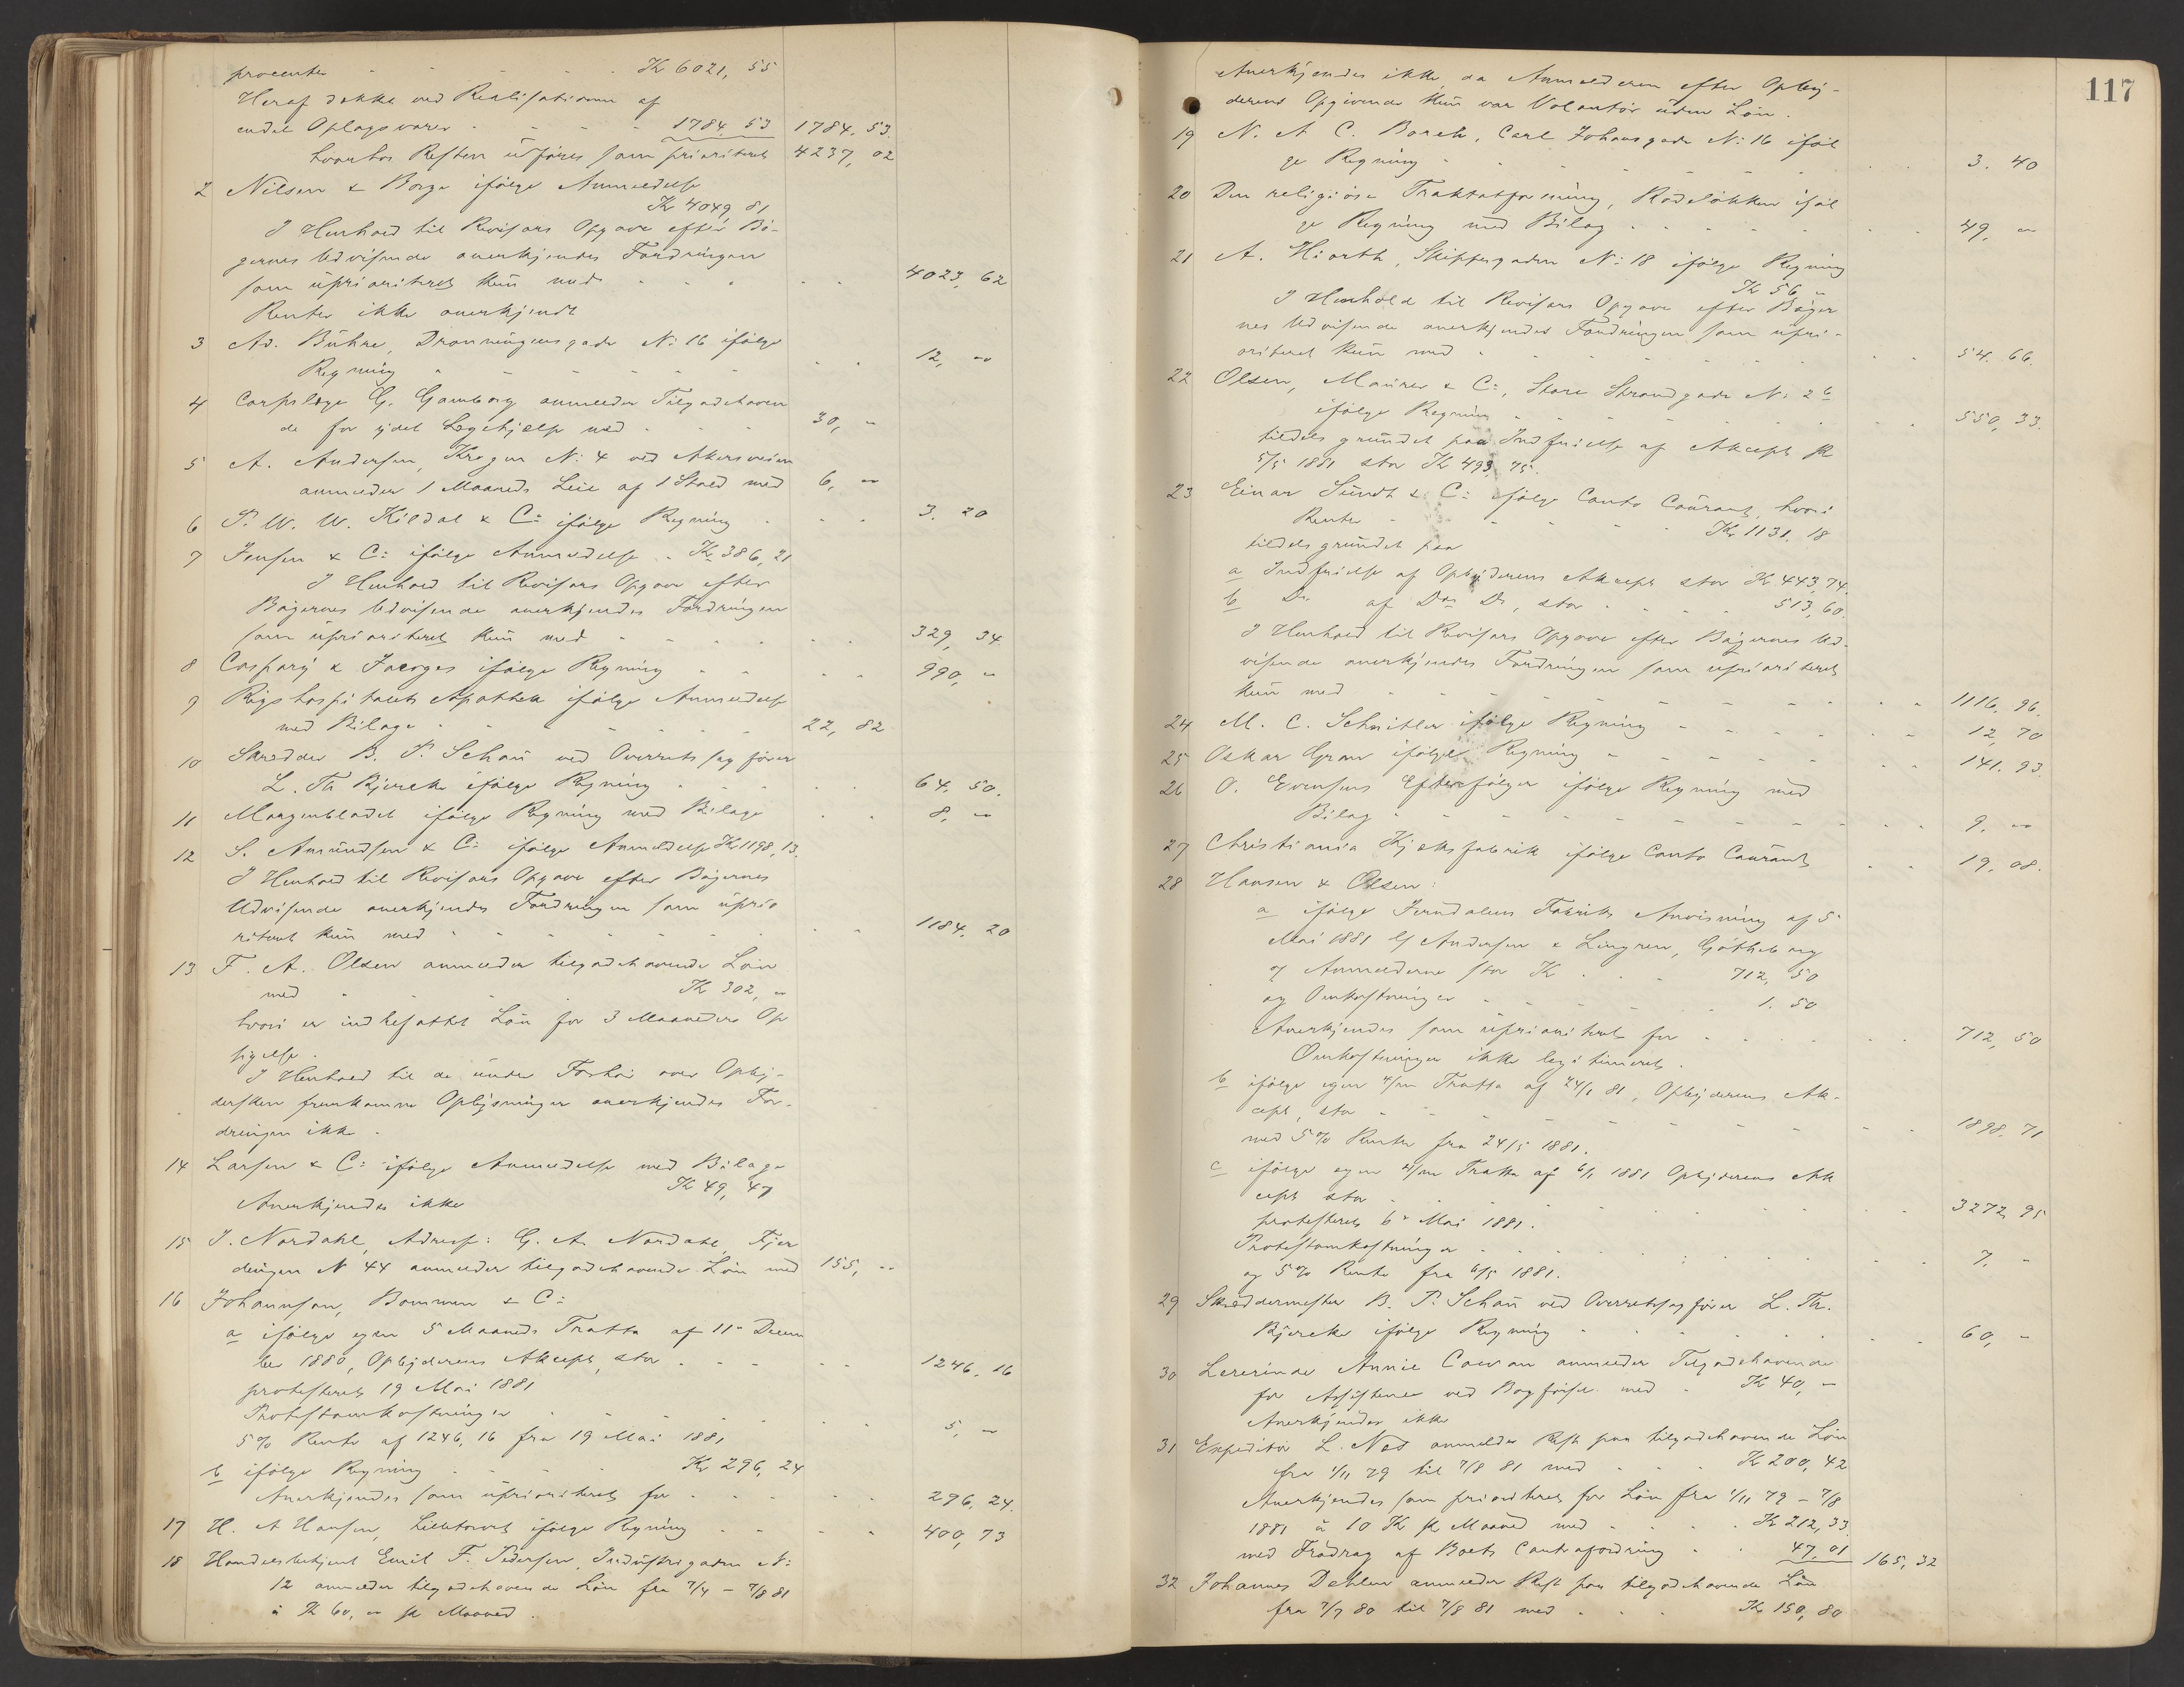 procenter - - - - - Kr 6021, 55
Heraf dækket ved Realisationen af
endel Oplagsvarer - - - 1784. 53 1784. 53.
hvorhos Resten udføres som prioriteret 4237, 02
2 Nilsen & Borge ifølge Anmeldelse
Kr 4049, 81
I Henhold til Revisors Opgave efter Bø-
gernes Udvisende anerkjendes Fordringen
som uprioriteret kun med - - - - 4023, 62
Renter ikke anerkjendt
3 Ad. Bühre, Dronningensgade N: 16 ifølge
Regning - - - - - - 12, "
4 Corpslæge G. Gamborg anmelder Tilgodehaven
de for ydet Lægehjelp med - - - 30, "
5 A. Andersen, Krogen N: 4 ved Akersveien
anmelder 1 Maaneds Leie af 1 Stald med 6, "
6 P. W. W. Kildal & C: ifølge Regning - - - 3. 20
7 Jensen & C: ifølge Anmeldelse - Kr 386, 21
I Henhold til Revisors Opgave efter
Bøgernes Udvisende anerkjendes Fordringen
som uprioriteret kun med - - - - 329, 34
8 Caspary & Jacoges ifølge Regning - - - 990, "
9 Rigshospitalets Apothek ifølge Anmeldelse
med Bilage - - - - 22, 82
10 Skredder B. P. Schau ved Overretssagfører
L. Th Bjercke ifølge Regning - - - 64. 50.
11 Morgenbladet ifølge Regning med Bilage - - 8, "
12 S. Amundsen & C: ifølge Anmeldelse Kr 1198, 13.
I Henhold til Revisors Opgave efter Bøgernes
Udvisende anerkjendes Fordringen som uprio
riteret kun med - - - - - - 1184. 20
13 F. A. Olsen anmelder tilgodehavende Løn
med - - - Kr 302, "
hvori er indbefattet Løn for 3 Maaneders Op
sigelse.
I Henhold til de under Forhør over Opby-
dersken fremkomne Oplysninger anerkjendes For-
dringen ikke.
14 Larsen & C: ifølge Anmeldelse med Bilage
Kr 49, 47
Anerkjendes ikke
15 J. Nordahl, Adresse: G. A. Nordahl, Fjer
dingen N 44 anmelder tilgodehavende Løn med 155, "
16 Johannson, Bommen & C:
a ifølge egen 5 Maaneds Tratta af 11" Decem
ber 1880, Opbyderens Akcept, stor - - - - 1246. 16
protesteret 19 Mai 1881
Protestomkostninger - - - - - 5, "
5 % Rente af 1246, 16 fra 19 Mai 1881
b ifølge Regning - - - Kr 296, 24
Anerkjendes som uprioriteret for - - - - 296. 24.
17 H. A Hansen, Lilletorvet ifølge Regning - - - 400, 73
18 Handelsbetjent Emil F. Pedersen, Industrigaden N:
12 anmelder tilgodehavende Løn fra 7/4 – 7/8 81
à Kr 60, " pr Maaned.
117
Anerkjendes ikke, da Anmelderen efter Opby-
derens Opgivende kun var Volontør uden Løn.
19 N. A C. Borch, Carl Johansgade N: 16 iføl
ge Regning - - - - - - 3. 40
20 Den religiøse Traktatforening, Rodeløkken iføl
ge Regning med Bilag - - - - - 49, "
21 A. Hiorth, Skippergaden N: 18 ifølge Regning
Kr 56 "
I Henhold til Revisors Opgave efter Bøger
nes Udvisende anerkjendes Fordringen som upri-
oriteret kun med - - - - - - 54. 66.
22 Olsen, Maurer & C:, Store Strandgade N: 2 b
ifølge Regning - - - - - - 550, 33.
tildels grundet paa Indfrielse af Akcept pr
5/5 1881 stor Kr 493, 75.
23 Einar Sundt & C: ifølge Conto Courant, hvori
Renter - - - - - Kr 1131. 18
tildels grundet paa
a Indfrielse af Opbyderens Akcept stor Kr 443, 74.
b Do af Dos Do, stor - - - - 513, 60.
I Henhold til Revisors Opgave efter Bøgernes Ud-
visende anerkjendes Fordringen som uprioriteret
kun med - - - - - - - 1116. 96.
24 M. C. Schnitler ifølge Regning - - - - 12, 70
25 Oskar Gran ifølge Regning - - - - - 141. 93.
26 O. Evensens Efterfølger ifølge Regning med
Bilag - - - - - - - 9. "
27 Christiania Kjeksfabrik ifølge Conto Courant - - 19, 08.
28 Hansen & Olsen:
a ifølge Jerndalens Fabriks Anvisning af 5
Mai 1881 p/ Andersen & Lingren, Gøtheborg
og Anmelderne stor Kr - - - 712, 50
og Omkostninger - - - - 1. 50
Anerkjendes som uprioriteret for - - - - 712, 50
Omkostninger ikke legitimeret.
b ifølge egen 4/m Tratta af 24/1 81, Opbyderens Ak-
cept, stor - - - - - - - 1898. 71
med 5 % Renter fra 24/5 1881.
c ifølge egen 4/m Tratta af 6/1 1881 Opbyderens Ak
cept stor - - - - - - - 3272, 95
protesteret 6" Mai 1881.
Protestomkostninger - - - - - - 7. "
og 5 % Rente fra 6/5 1881.
29 Skreddermester B. P. Schau ved Overretssagfører L. Th.
Bjercke ifølge Regning - - - - - 60, "
30 Lererinde Annie Cowan anmelder Tilgodehavende
for Assistence ved Bogførsel med - Kr 40, "
Anerkjendes ikke
31 Expeditør L. Næs anmelder Rest paa tilgodehavende Løn
fra 1/11 79 til 7/8 81 med - - Kr 200, 42
Anerkjendes som prioriteret for Løn fra 1/11 79 – 7/8
1881 à 10 Kr pr Maaned med - - - Kr 212, 33.
med Fradrag af Boets Contrafordring - - 47, 01 165, 32
32 Johannes Dehlin anmelder Rest paa tilgodehavende Løn
fra 7/7 80 til 7/8 81 med - - - Kr. 150, 80